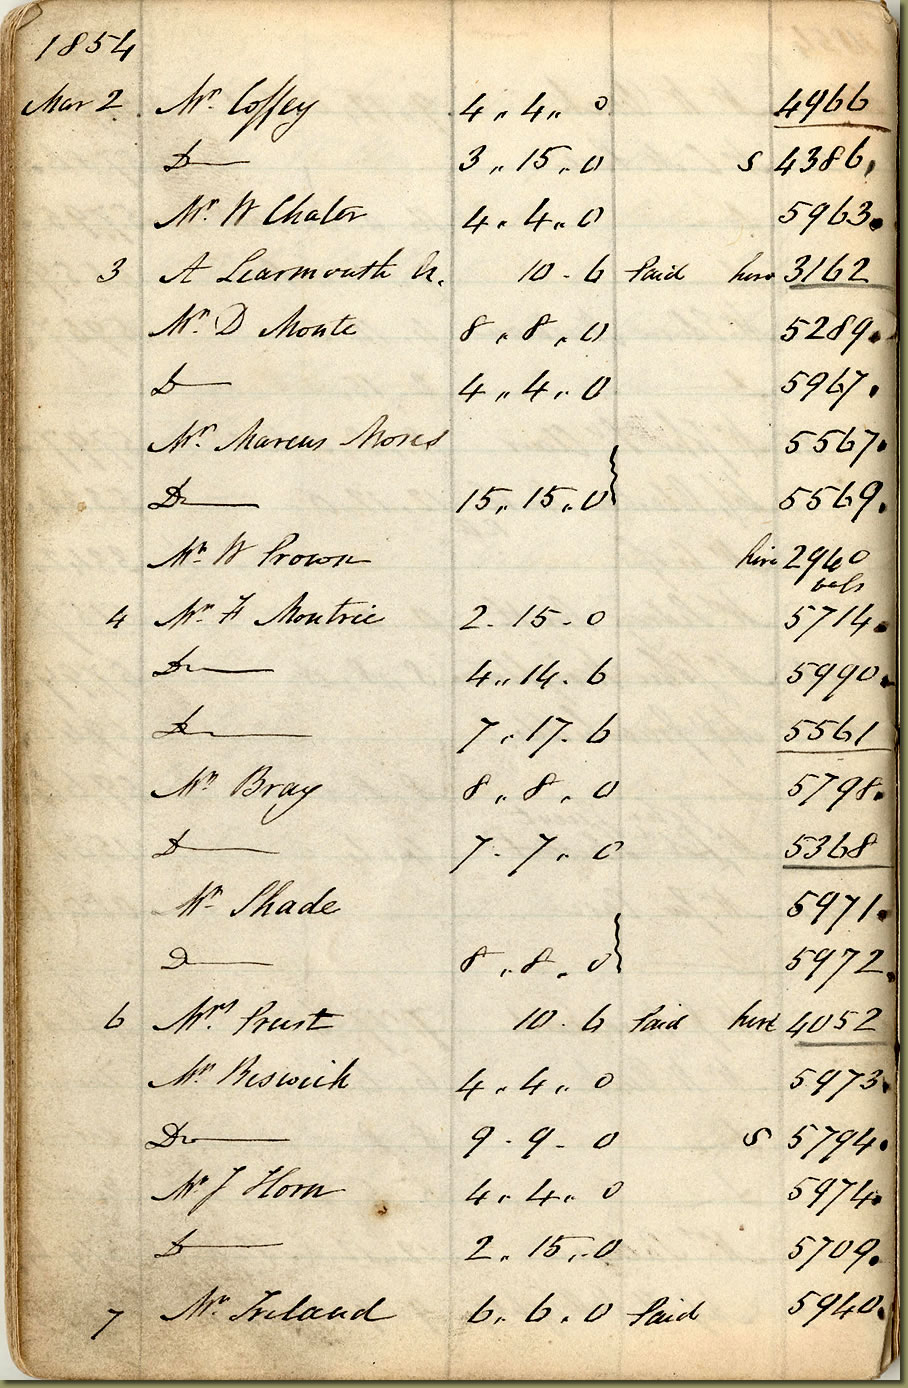 1854
Mar 2 Mr. Coffey 4 „ 4 „ 0 4966
Do 3 „ 15 „ 0 S 4386.
Mr. W Chater 4 „ 4 „ 0 5963.
3 A Learmouth 10 - 6 Paid hire 3162
Mr. D Monte 8 „ 8 „ 0 5289.
Do 4 „ 4 „ 0 5967.
Mr. Marcus Moses 5567.
Do 15 „ 15 „ 0 } 5569.
Mr. W Prown hire 2940
4 Mr. F Moutrie 2 - 15 - 0 5714.
Do 4 „ 14 - 6 5990.
Do 7 „ 17 - 6 5561
Mr. Bray 8 „ 8 „ 0 5798.
Do 7 - 7 „ 0 5368
Mr. Shade 5971.
Do 8 „ 8 „ 0 } 5972.
6 Mrs. Prust 10 - 6 Paid hire 4052
Mr. Beswick 4 „ 4 „ 0 5973.
Do 9 - 9 - 0 S 5794.
Mr J Horn 4 „ 4 „ 0 5974.
Do 2 „ 15 „ 0 5709.
7 Mr. Ireland 6 „ 6 „ 0 Paid 5940.